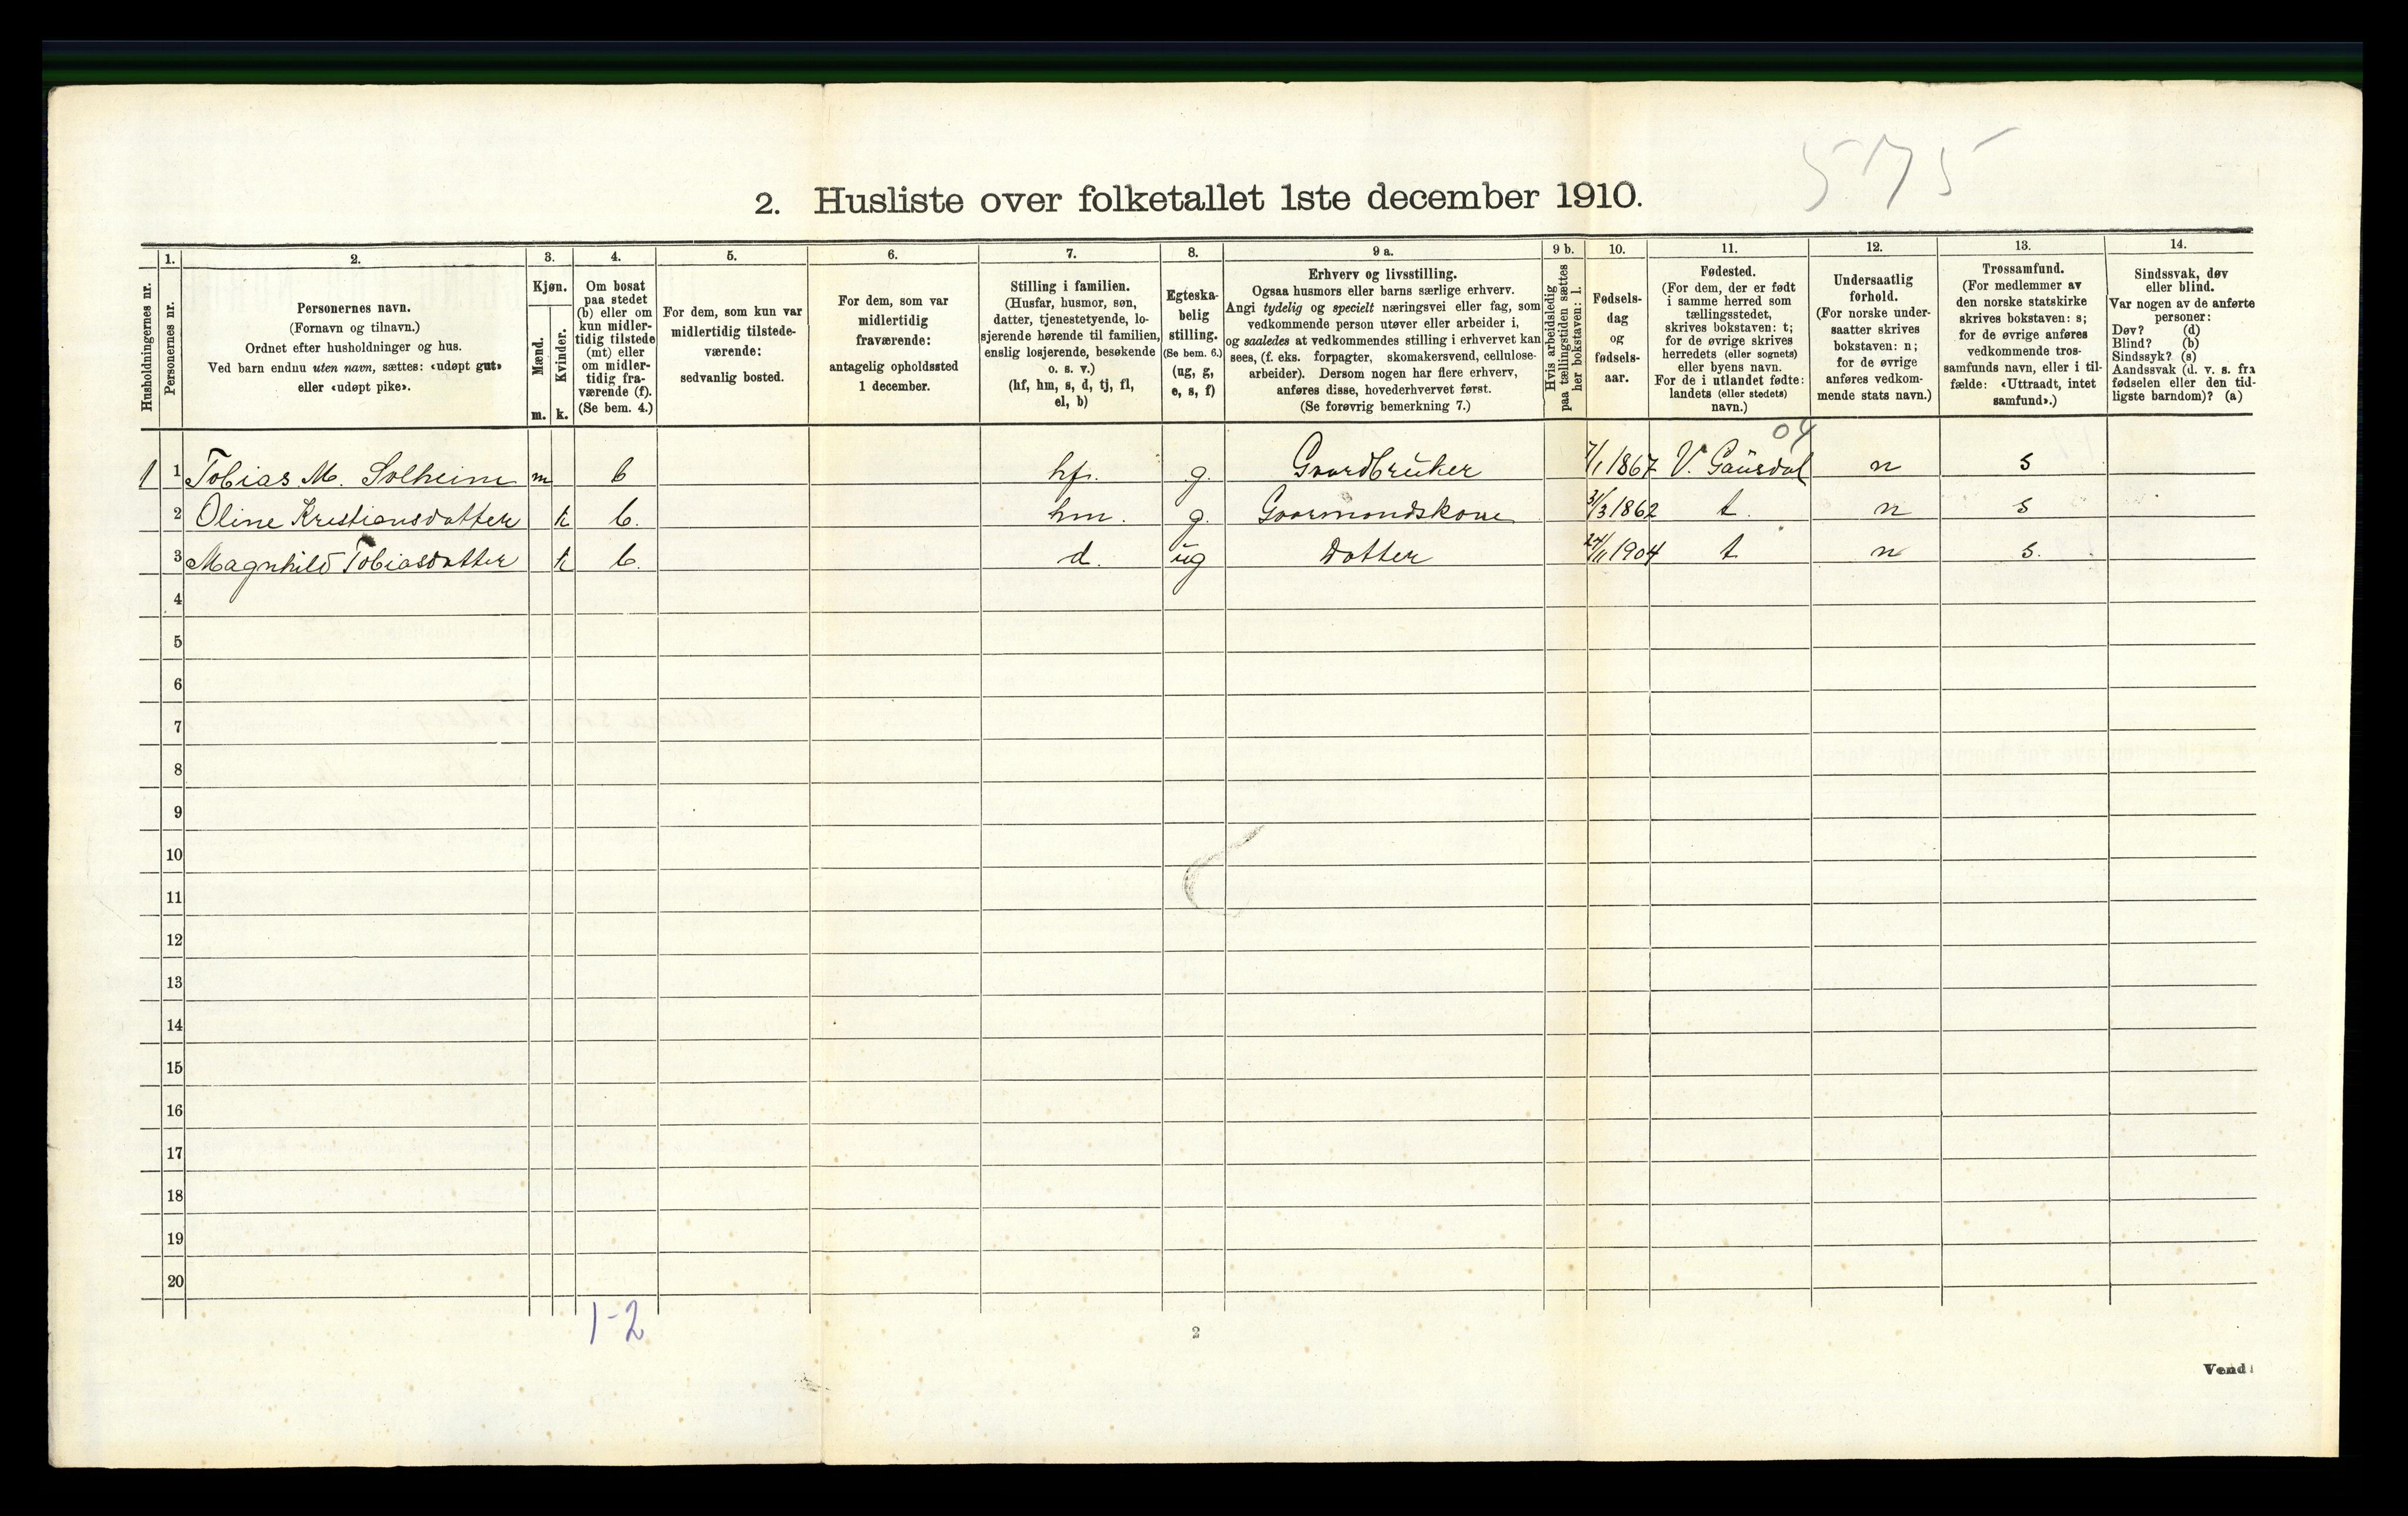 575
2. Husliste over folketallet 1ste december 1910.
Husholdningernes nr.
1.
Personernes nr.
2.
Personernes navn.
(Fornavn og tilnavn.)
Ordnet efter husholdninger og hus.
Ved barn endnu uten navn, sættes: «udøpt gut»
eller «udøpt pike».
3.
Kjøn.
Mænd.
m.
Kvinder.
k.
4.
Om bosat
paa stedet
(b) eller om
kun midler-
tidig tilstede
(mt) eller
om midler-
tidig fra-
værende (f).
(Se bem. 4.)
5.
For dem, som kun var
midlertidig tilstede-
værende:
sedvanlig bosted.
6.
For dem, som var
midlertidig
fraværende:
antagelig opholdssted
1 december.
7.
Stilling i familien.
(Husfar, husmor, søn,
datter, tjenestetyende, lo-
sjerende hørende til familien,
enslig losjerende, besøkende
o. s. v.)
(hf, hm, s, d, tj, fl,
el, b)
8.
Egteska-
belig
stilling.
(Se bem. 6.)
(ug, g,
e, s, f)
9 a.
Erhverv og livsstilling.
Ogsaa husmors eller barns særlige erhverv.
Angi tydelig og specielt næringsvei eller fag, som
vedkommende person utøver eller arbeider i,
og saaledes at vedkommendes stilling i erhvervet kan
sees, (f. eks. forpagter, skomakersvend, cellulose-
arbeider). Dersom nogen har flere erhverv,
anføres disse, hovederhvervet først.
(Se forøvrig bemerkning 7.)
9 b.
Hvis arbeidsledig
paa tællingstiden sættes
her bokstaven: l.
10.
Fødsels-
dag
og
fødsels-
aar.
11.
Fødested.
(For dem, der er født
i samme herred som
tællingsstedet,
skrives bokstaven: t;
for de øvrige skrives
herredets (eller sognets)
eller byens navn.
For de i utlandet fødte:
landets (eller stedets)
navn.)
12.
Undersaatlig
forhold.
(For norske under-
saatter skrives
bokstaven: n;
for de øvrige
anføres vedkom-
mende stats navn.)
13.
Trossamfund.
(For medlemmer av
den norske statskirke
skrives bokstaven: s;
for de øvrige anføres
vedkommende tros-
samfunds navn, eller i til-
fælde: «Uttraadt, intet
samfund».)
14.
Sindssvak, døv
eller blind.
Var nogen av de anførte
personer:
Døv? (d)
Blind? (b)
Sindssyk? (s)
Aandssvak (d. v. s. fra
fødselen eller den tid-
ligste barndom)? (a)
04
1 1 Tobias M. Solheim m b hf. g. Gaardbruker 7/1 1867 V. Gausdal n s
2 Oline Kristiansdatter k b. hm. g. Gaarmandskone 31/3 1862 t. n s
3 Magnhild Tobiasdatter k b. d. ug Datter 24/11 1904 t n s.
4
5
6
7
8
9
10
11
12
13
14
15
16
17
18
19
20
1-2
2
Vend!